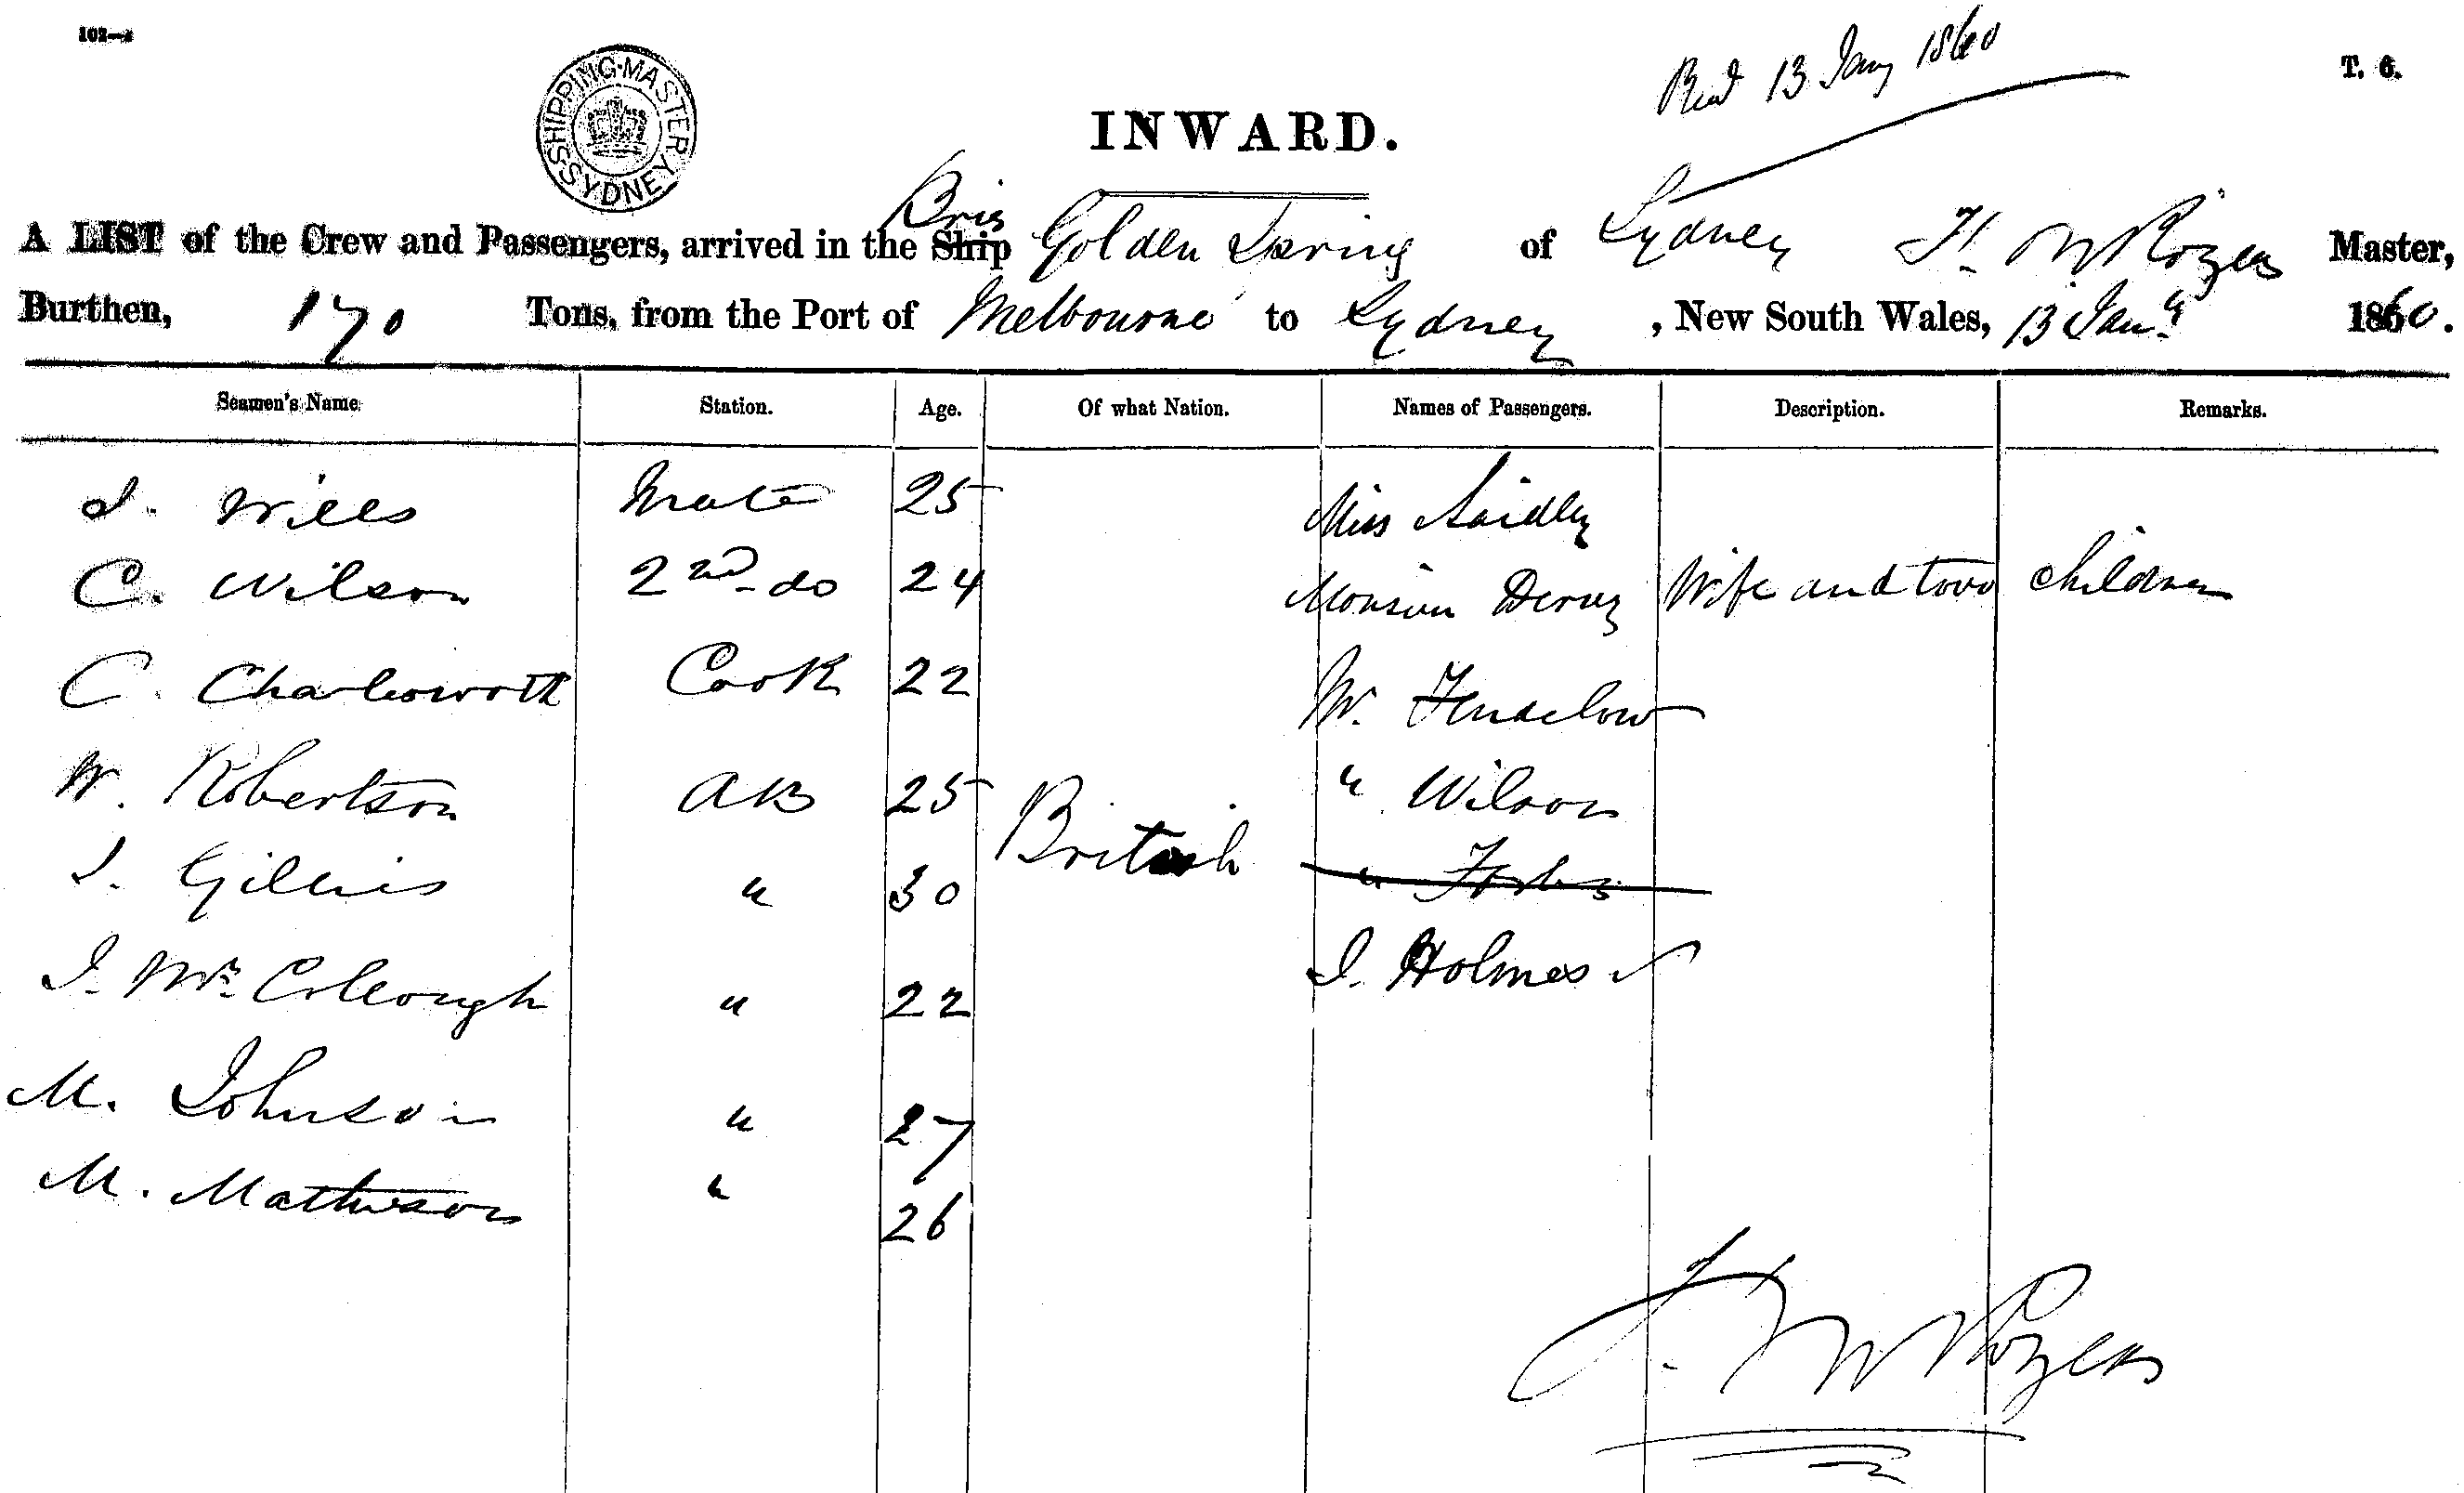 102—
T. 6.
SHIPPING MASTER SYDNEY
13 Jany 1860
INWARD.
Brig
A LIST of the Crew and Passengers, arrived in the Ship Golden Spring of Sydney F. W Rogers Master,
Burthen, 170 Tons, from the Port of Melbourne to Sydney, New South Wales, 13 Jany 1860.
Seamen's Name Station. Age. Of what Nation. Names of Passengers. Description. Remarks.
J. Wills Mate 25 Miss
C. Wilson 2nd do 24 Wife and two children
C. Charlesworth Cook 22 Mr.
W. Robertson AB 25 British " Wilson
J. Gillies " 30 " Forbes
J. McCollough " 22 J. Holmes
M. Johnson " 27
M. Mathieson " 26
F. W Rogers